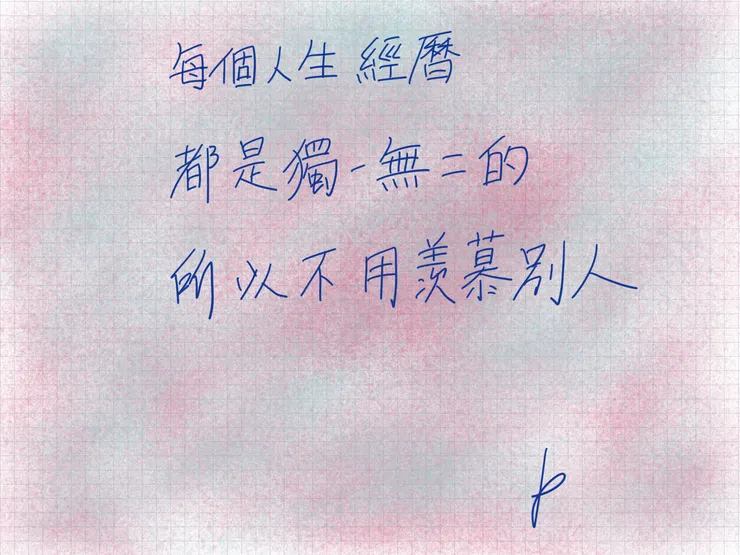 每個人生經曆
都是獨一無二的
所以不用羨慕別人